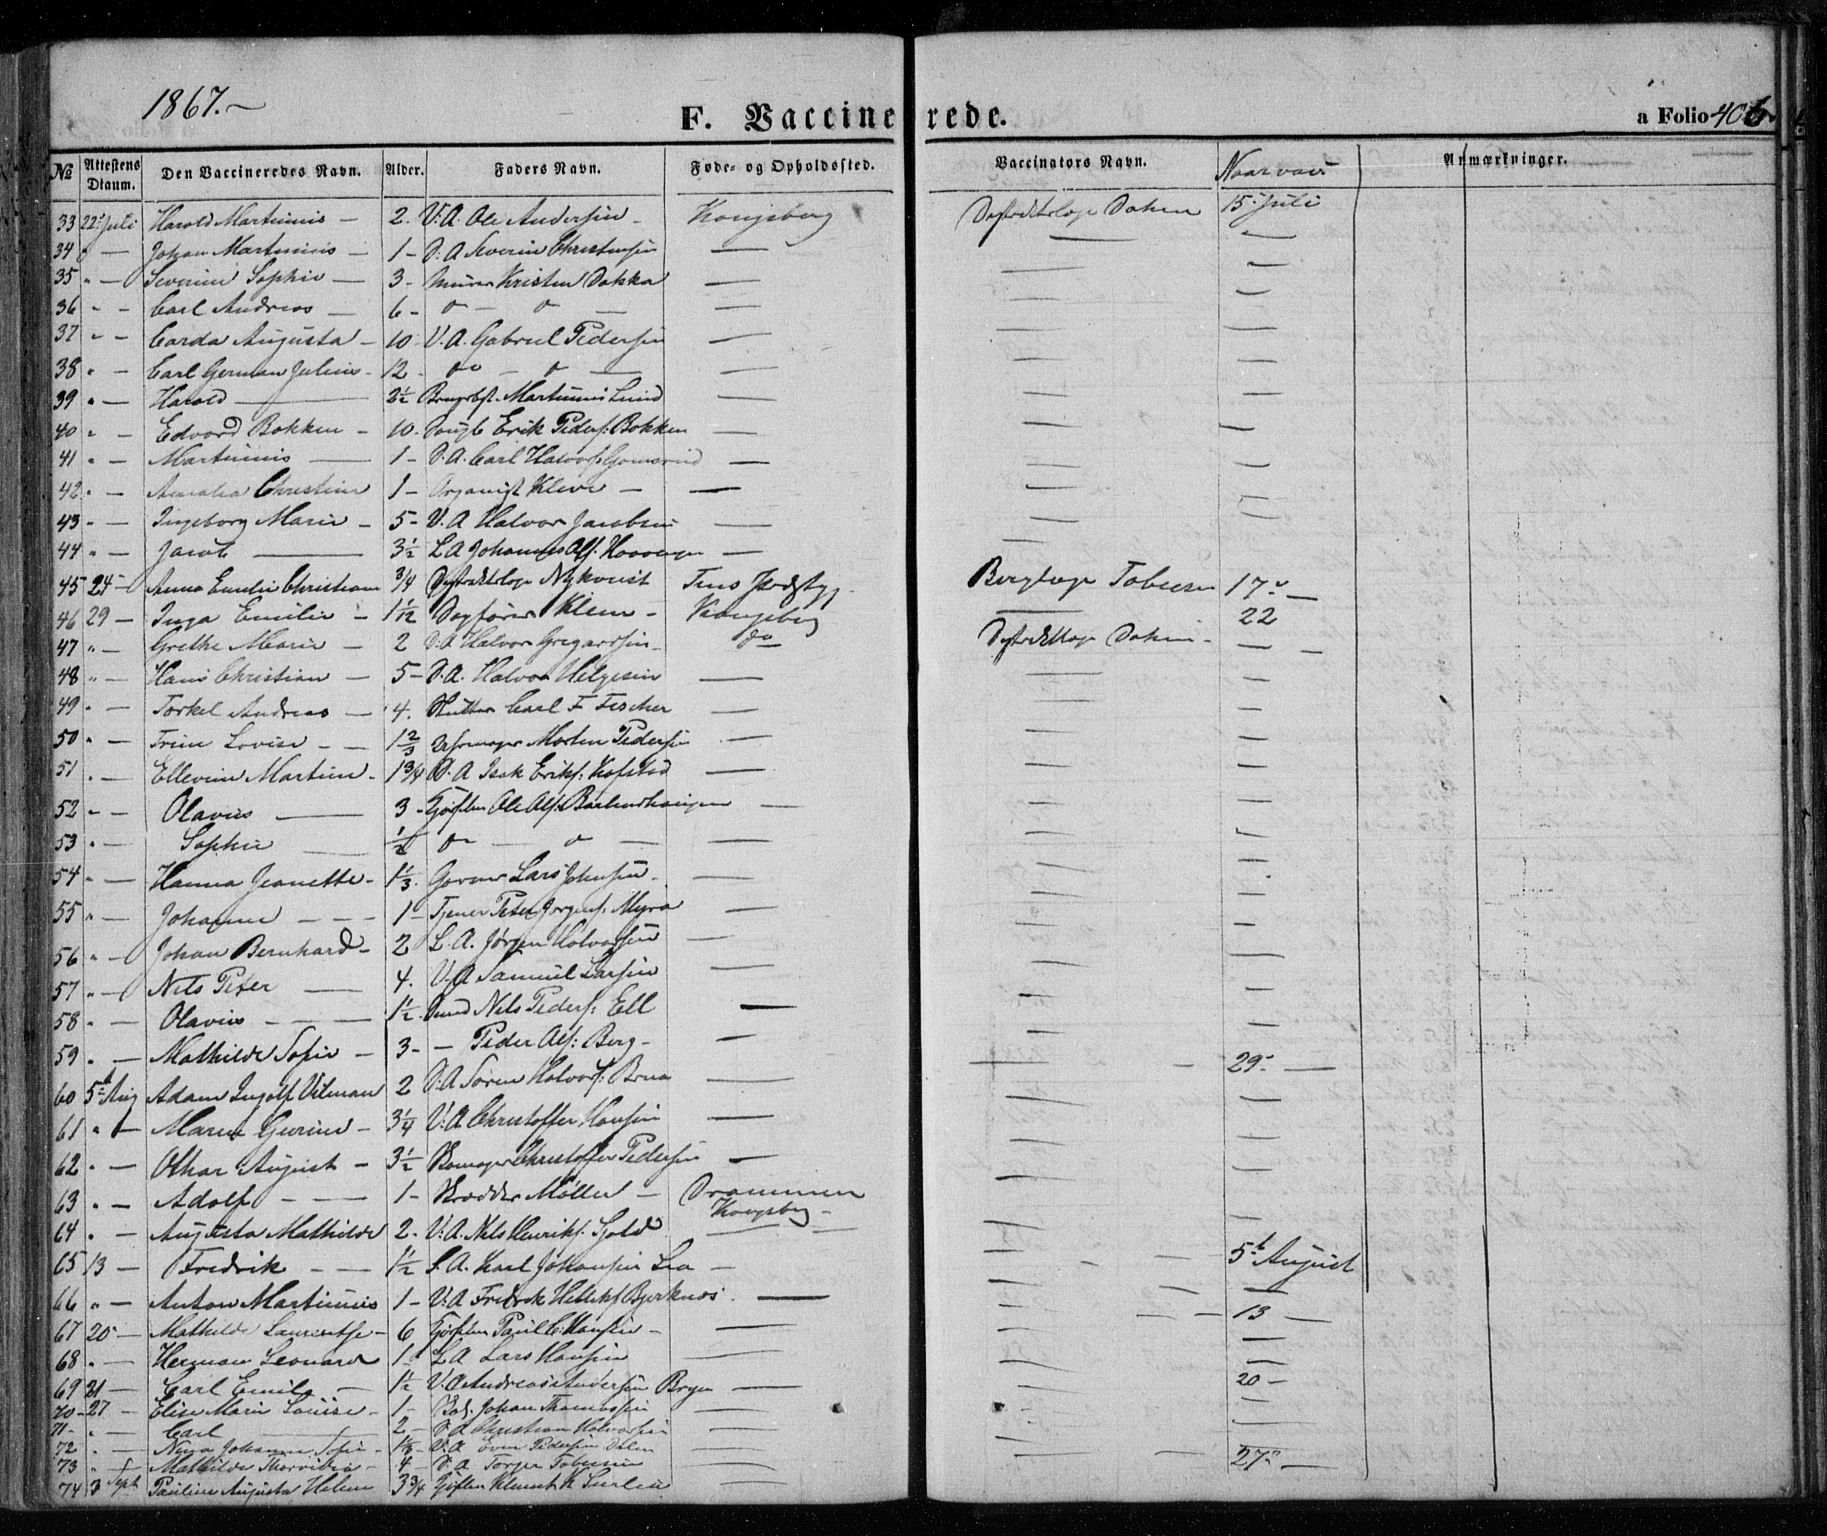 1867.—
F. Vaccinerede.
a Folio 406
№ Attestens Dtaum. Den Vaccineredes Navn. Alder. Faders Navn. Føde- og Opholdssted. Vaccinators Navn. Naar vacc Anmærkninger.
33 22 Juli Harald Martinius — 2. V. A. Ole Andersen Kongsberg Distriktslæge Dahm 15 Juli
34 " — Johan Martinius — 1 — D. A. Severin Christensen — — —
35 " — Severine Sophie — 3 — Murer Kristen Dokka — — —
36 " — Carl Andreas — 6 — do — do — — — —
37 " — Carda Augusta — 10 V. A. Gabriel Pedersen — — —
38 " — Carl Herman Julius — 12 do — do — — — —
39 " — Harald — 2½ Martinius Lund — — —
40 " — Edvard Bakken — 10 Erik Peders: Bakken — — —
41 " — Martinius — 1 — D. A. Carl Halvors: — — —
42 " — Amalia Christine 1 — Organist Kleve — — — —
43 " — Ingeborg Marie — 5 — V. A. Halvor Jacobsen — — —
44 " — Jacob — 3½ L A Johannes Olss: — — —
45 24 — Anna Emilie Christiane ¾ Distriktslæge Nykvist Tins Berglæge Tobiesen 17 —
46 29 — Inga Emilie — 1 1/12 Klem — Kongsberg — 22
47 " — Grethe Marie — 2 D. A. Halvor Gregersen — do Distriktslæge Dahm — — —
48 " — Hans Christian — 5 — D. A. Halvor Helgesen — — —
49 " — Torkel Andreas — 4. Carl F Fischer — — —
50 " — Trine Lovise — — 1⅔ Morten Pedersen — — —
51 " — Ellevine Martine — 1¾ D. A Isak Eriks: Kofstad — — —
52 " — Olavus — 3 — Ole Ols: — — —
53 " — Sophie — ½ do — do — — — —
54 " — Hanna Jeanette — 1⅓ Garver Lars Johnsen — — — —
55 " — Johanne — — — 1 — Tjener Peter Jørgens: Myra — — —
56 " — Johan Bernhard — 2 L. A. Jørgen Halvorsen — — —
57 " — Nils Peter — 4. V. A Samuel Larsen — — —
58 " — Olavus — — — 1½ Nils Peders: Ell — — —
59 " — Mathilde Sofie — 3 — — Peder Ols: Berg — — — 29 —
60 5t Aug Adam Ingolf Vilman 2 D. A Søren Halvors: Brua — — —
61 " — Maren Gurine — 3¼ V. A. Christoffer Hansen — — —
62 " — Othar August — 3½ Skomager Christoffer Pedersen — — —
63 " — Adolf — — — 1 — Skrædder Møller — Drammen — —
64 " — Augusta Mathilde 2 — V. A. Nils Henriks: Kongsberg — — —
65 13 — Fredrik — — 1½ S. A. Karl Johansen Lia — — 5t August
66 " — Anton Martinius 1 — V. A Fredrik Helliks: Bjerknes — — —
67 20 — Mathilde Lauritse — 6 Paul C. Hansen — — — 13 —
68 " — Herman Leonard 1 L A Lars Hansen — — —
69 21 — Carl Emil — 1½ V. A Andreas Andersen Bryn — — 20 —
70 — 27 — Elise Marie Louise — 1 — Johan Thomassen — — —
71 — " — Carl — 2 — D. A Christian Halvorsen — — —
72 " — Johanne Sofie — 1⅓ — V. A Even Pedersen Dalen — — —
73 " — Mathilde — 4 — D. A Torger Tobiesen — — 27 —
74 3 Sept Pauline Augusta Helene 3¾ Klemet K — —